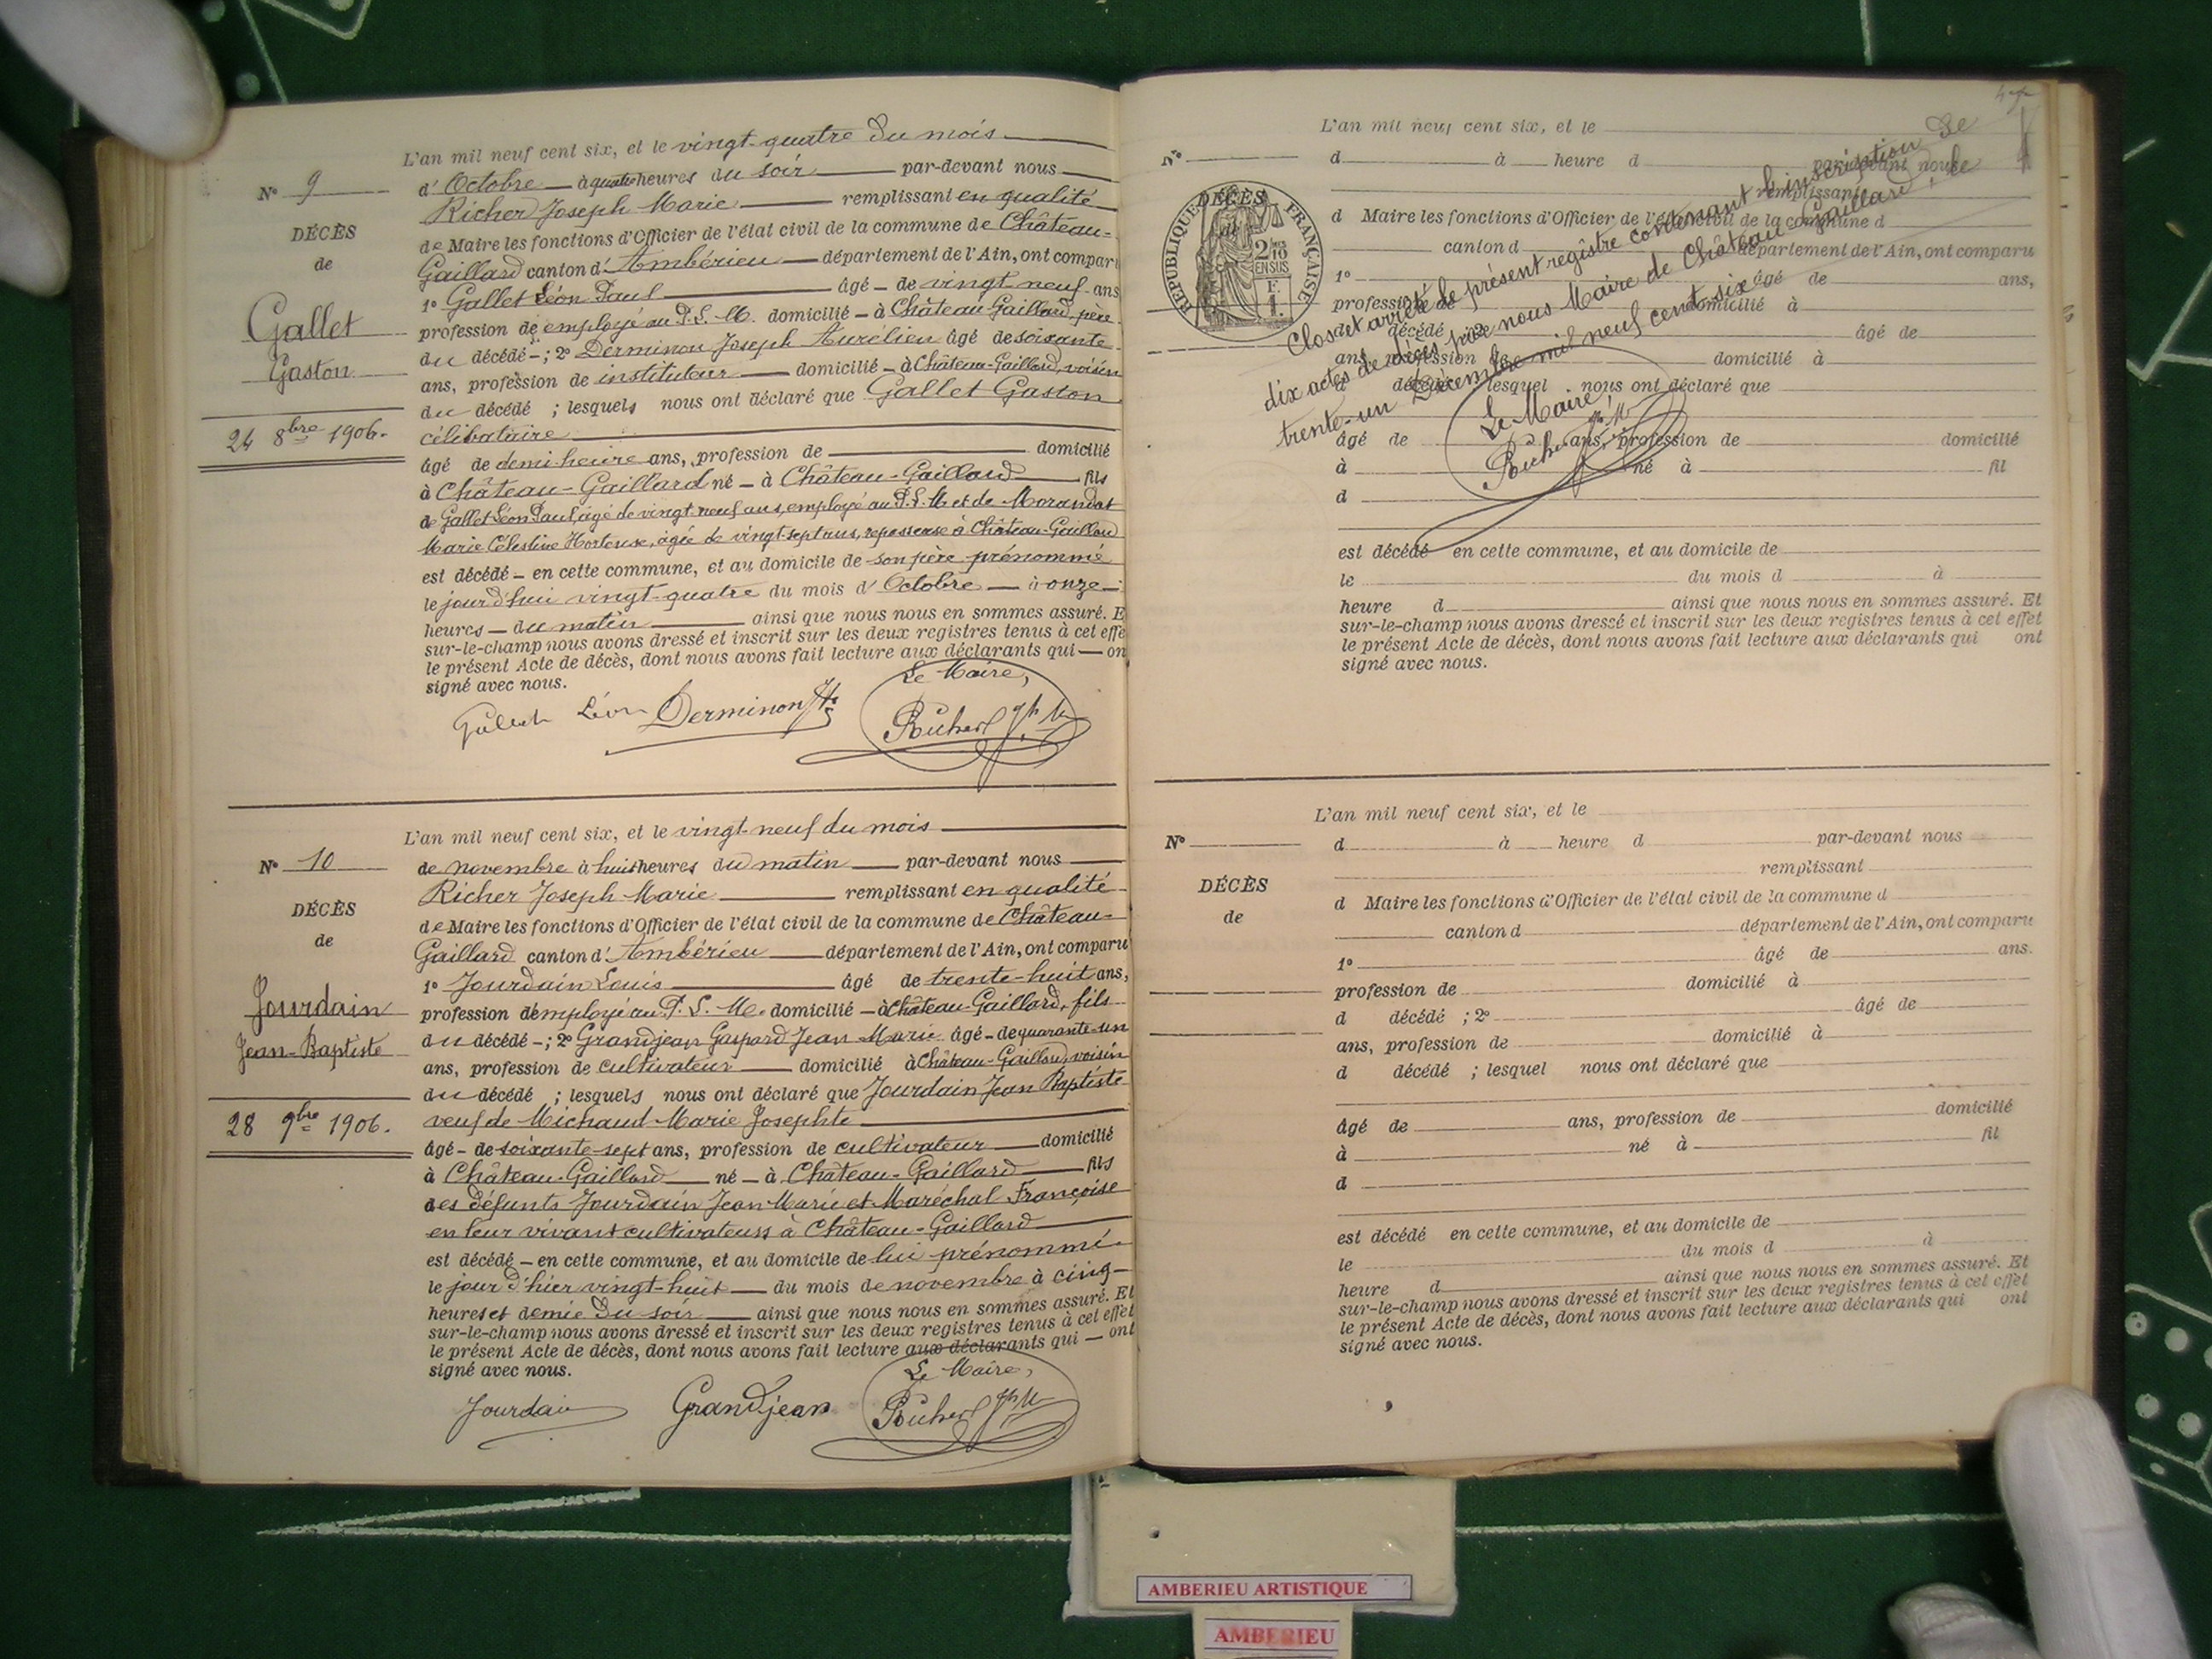 L'an mil neuf cent six, et le vingt-quatre du mois
N° 9
d'Octobre à quatre heures du soir par-devant nous
Richer Joseph Marie remplissant en qualité
DÉCÈS
de Maire les fonctions d'Officier de l'état civil de la commune de Château-
de
Gaillard canton d'Ambérieu département de l'Ain, ont comparu
1° Gallet Léon Paul âgé de vingt neuf ans
Gallet
profession de employé au P.L.M. domicilié à Château-Gaillard, père
du décédé ; 2° Derminon Joseph Aurélien âgé de soixante
Gaston
ans, profession de instituteur domicilié à Château-Gaillard, voisin
du décédé ; lesquels nous ont déclaré que Gallet Gaston
24 8bre 1906.
célibataire
âgé de demi-heure ans, profession de domicilié
à Château-Gaillard né à Château-Gaillard fils
de Gallet Léon Paul, âgé de vingt neuf ans, employé au P.L.M. et de Morandat
Marie Célestine Hortense, âgée de vingt-sept ans, repasseuse à Château-Gaillard
est décédé en cette commune, et au domicile de son père prénommé
le jourd'hui vingt-quatre du mois d'Octobre à onze
heures du matin ainsi que nous nous en sommes assuré. E
sur-le-champ nous avons dressé et inscrit sur les deux registres tenus à cet effe
le présent Acte de décès, dont nous avons fait lecture aux déclarants qui on
signé avec nous.
Le Maire,
Gallet Léon Derminon Richer
L'an mil neuf cent six, et le vingt-neuf du mois
N° 10
de novembre à huit heures du matin par-devant nous
Richer Joseph Marie remplissant en qualité
DÉCÈS
de Maire les fonctions d'Officier de l'état civil de la commune de Château-
de
Gaillard canton d'Ambérieu département de l'Ain, ont comparu
1° Jourdain Louis âgé de trente-huit ans,
Jourdain
profession d'employé au P.L.M. domicilié à Château-Gaillard, fils
du décédé ; 2° Grandjean Gaspard Jean Marie âgé de quarante-un
Jean-Baptiste
ans, profession de cultivateur domicilié à Château-Gaillard, voisin
du décédé ; lesquels nous ont déclaré que Jourdain Jean Baptiste
28 9bre 1906.
veuf de Michaud Marie Josephte
âgé de soixante-sept ans, profession de cultivateur domicilié
à Château-Gaillard né à Château-Gaillard fils
des défunts Jourdain Jean Marie et Maréchal Françoise
en leur vivant cultivateurs à Château-Gaillard
est décédé en cette commune, et au domicile de lui prénommé
le jour d'hier vingt-huit du mois de novembre à cinq
heures et demie du soir ainsi que nous nous en sommes assuré. Et
sur-le-champ nous avons dressé et inscrit sur les deux registres tenus à cet effet
le présent Acte de décès, dont nous avons fait lecture aux déclarants qui ont
signé avec nous.
Le Maire,
Jourdain Grandjean Richer
L'an mil neuf cent six, et le
N°
d à heure d par-devant nous
remplissant
DÉCÈS
RÉPUBLIQUE FRANÇAISE
2/10 EN SUS
F. 1.
d Maire les fonctions d'Officier de l'état civil de la commune d
canton d département de l'Ain, ont comparu
1° âgé de ans,
profession de domicilié à
d décédé ; 2° âgé de
ans, profession de domicilié à
d décédé ; lesquel nous ont déclaré que
âgé de ans, profession de domicilié
à né à fil
d
est décédé en cette commune, et au domicile de
le du mois d à
heure d ainsi que nous nous en sommes assuré. Et
sur-le-champ nous avons dressé et inscrit sur les deux registres tenus à cet effet
le présent Acte de décès, dont nous avons fait lecture aux déclarants qui ont
signé avec nous.
Clos et arrêté le présent registre contenant l'inscription de
dix actes de décès par nous Maire de Château-Gaillard, le
trente-un Décembre mil neuf cent six
Le Maire,
Richer
L'an mil neuf cent six, et le
N°
d à heure d par-devant nous
remplissant
DÉCÈS
d Maire les fonctions d'Officier de l'état civil de la commune d
de
canton d département de l'Ain, ont comparu
1° âgé de ans.
profession de domicilié à
d décédé ; 2° âgé de
ans, profession de domicilié à
d décédé ; lesquel nous ont déclaré que
âgé de ans, profession de domicilié
à né à fil
d
est décédé en cette commune, et au domicile de
le du mois d à
heure d ainsi que nous nous en sommes assuré. Et
sur-le-champ nous avons dressé et inscrit sur les deux registres tenus à cet effet
le présent Acte de décès, dont nous avons fait lecture aux déclarants qui ont
signé avec nous.
AMBERIEU ARTISTIQUE
AMBERIEU